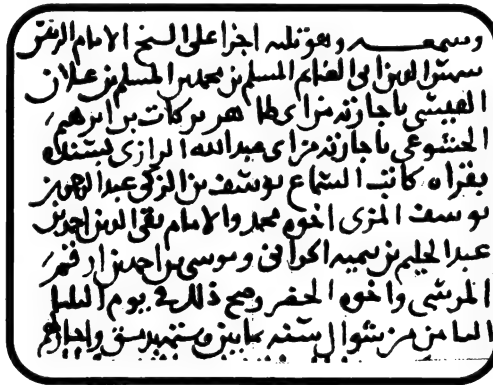 وسمعه وهو ثلثه اجزا على الشيخ الامام الرئيس
شمس الدين ابى الغنايم المسلم بن محمد بن المسلم بن علان
القيسى باجازته من ابى طاهر بركات بن ابرهيم
الخشوعى باجازته من ابى عبد الله الرازى بسنده
بقراه كاتب السماع يوسف بن الزكى عبد الرحمن بن
يوسف المزى اخوه محمد والامام تقى الدين احمد بن
عبد الحليم بن تيميه الحرانى وموسى بن احمد بن
المرسى واخوه الخضر وصح ذلك فى يوم
الثامن من شوال سنه ثمانين وستمايه بدمشق واجاز لهم